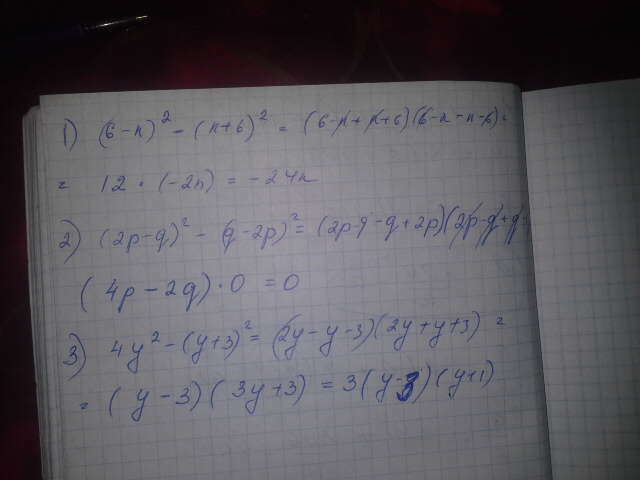 1) (6-n)² - (n+6)² = (6-n+n+6)(6-n-n-6)=
= 12 · (-2n) = -24n
2) (2p-q)² - (q-2p)² = (2p-q-q+2p)(2p-q+q
(4p-2q)·0 = 0
3) 4y² - (y+3)² = (2y-y-3)(2y+y+3) =
= (y-3)(3y+3) = 3(y-3)(y+1)